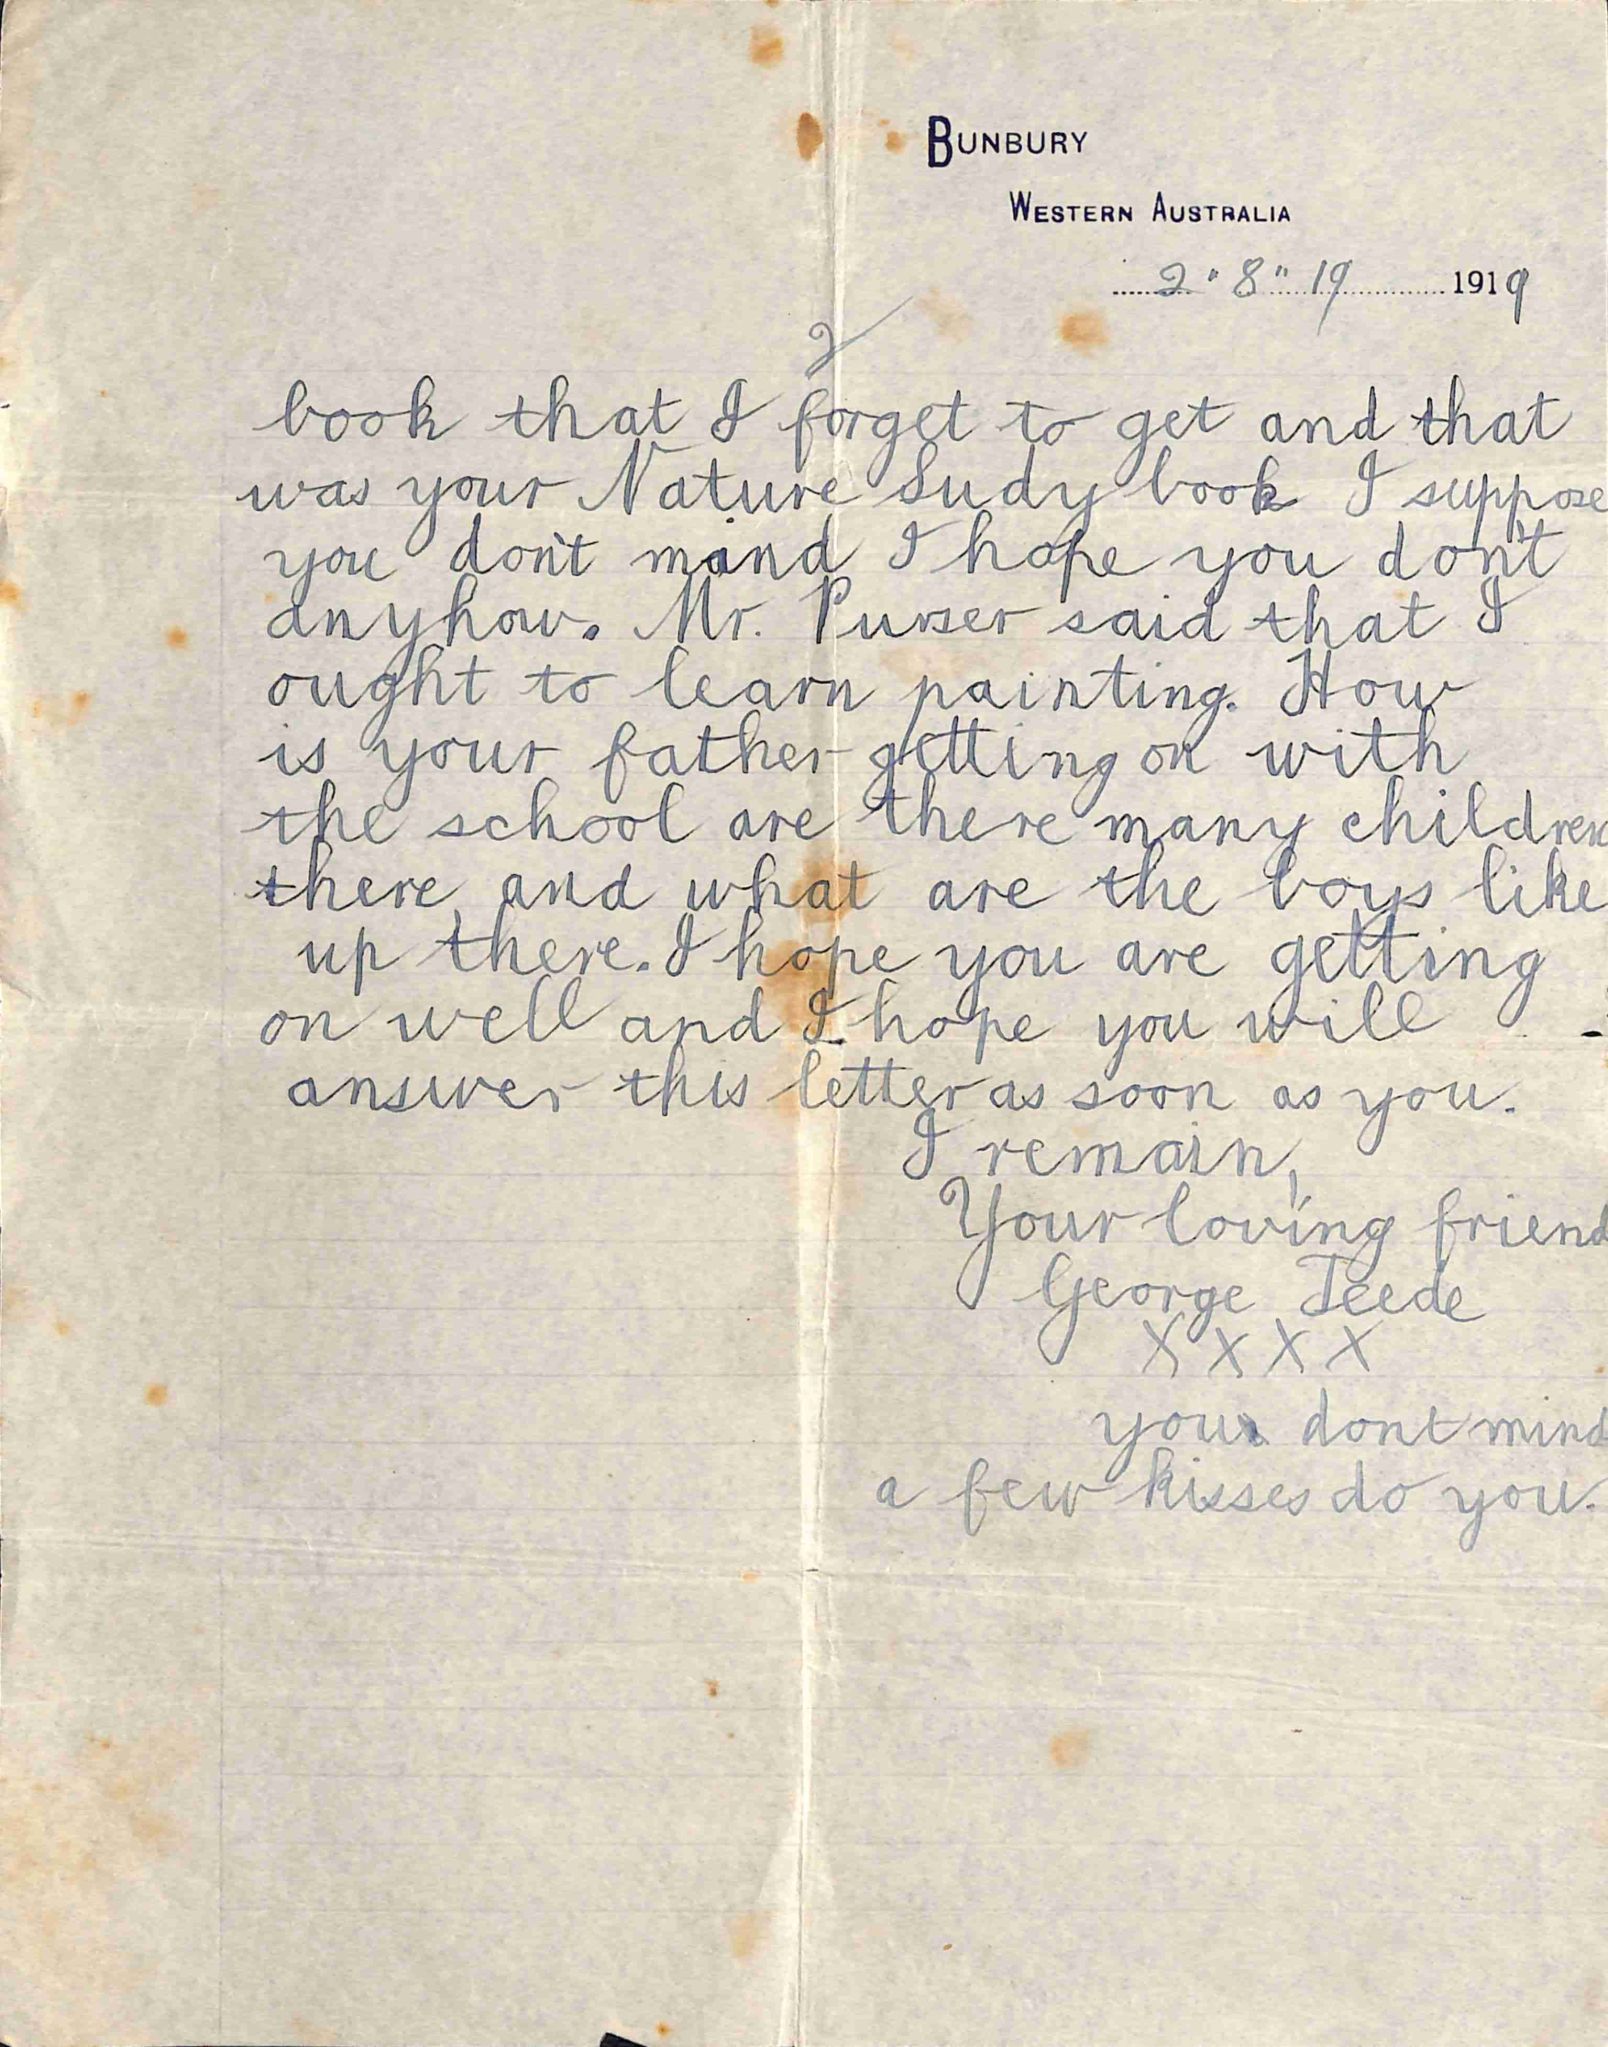 BUNBURY
WESTERN AUSTRALIA
2 " 8 " 19 1919
2
book that I forget to get and that
was your Nature Sudy book I suppose
you don't mind I hope you don't
anyhow. Mr. Purser said that I
ought to learn painting. How
is your father getting on with
the school are there many children
there, and what are the boys like
up there. I hope you are getting
on well and I hope you will
answer this letter as soon as you.
I remain,
Your loving friend
George Teede
X X X X
you dont mind
a few kisses do you.